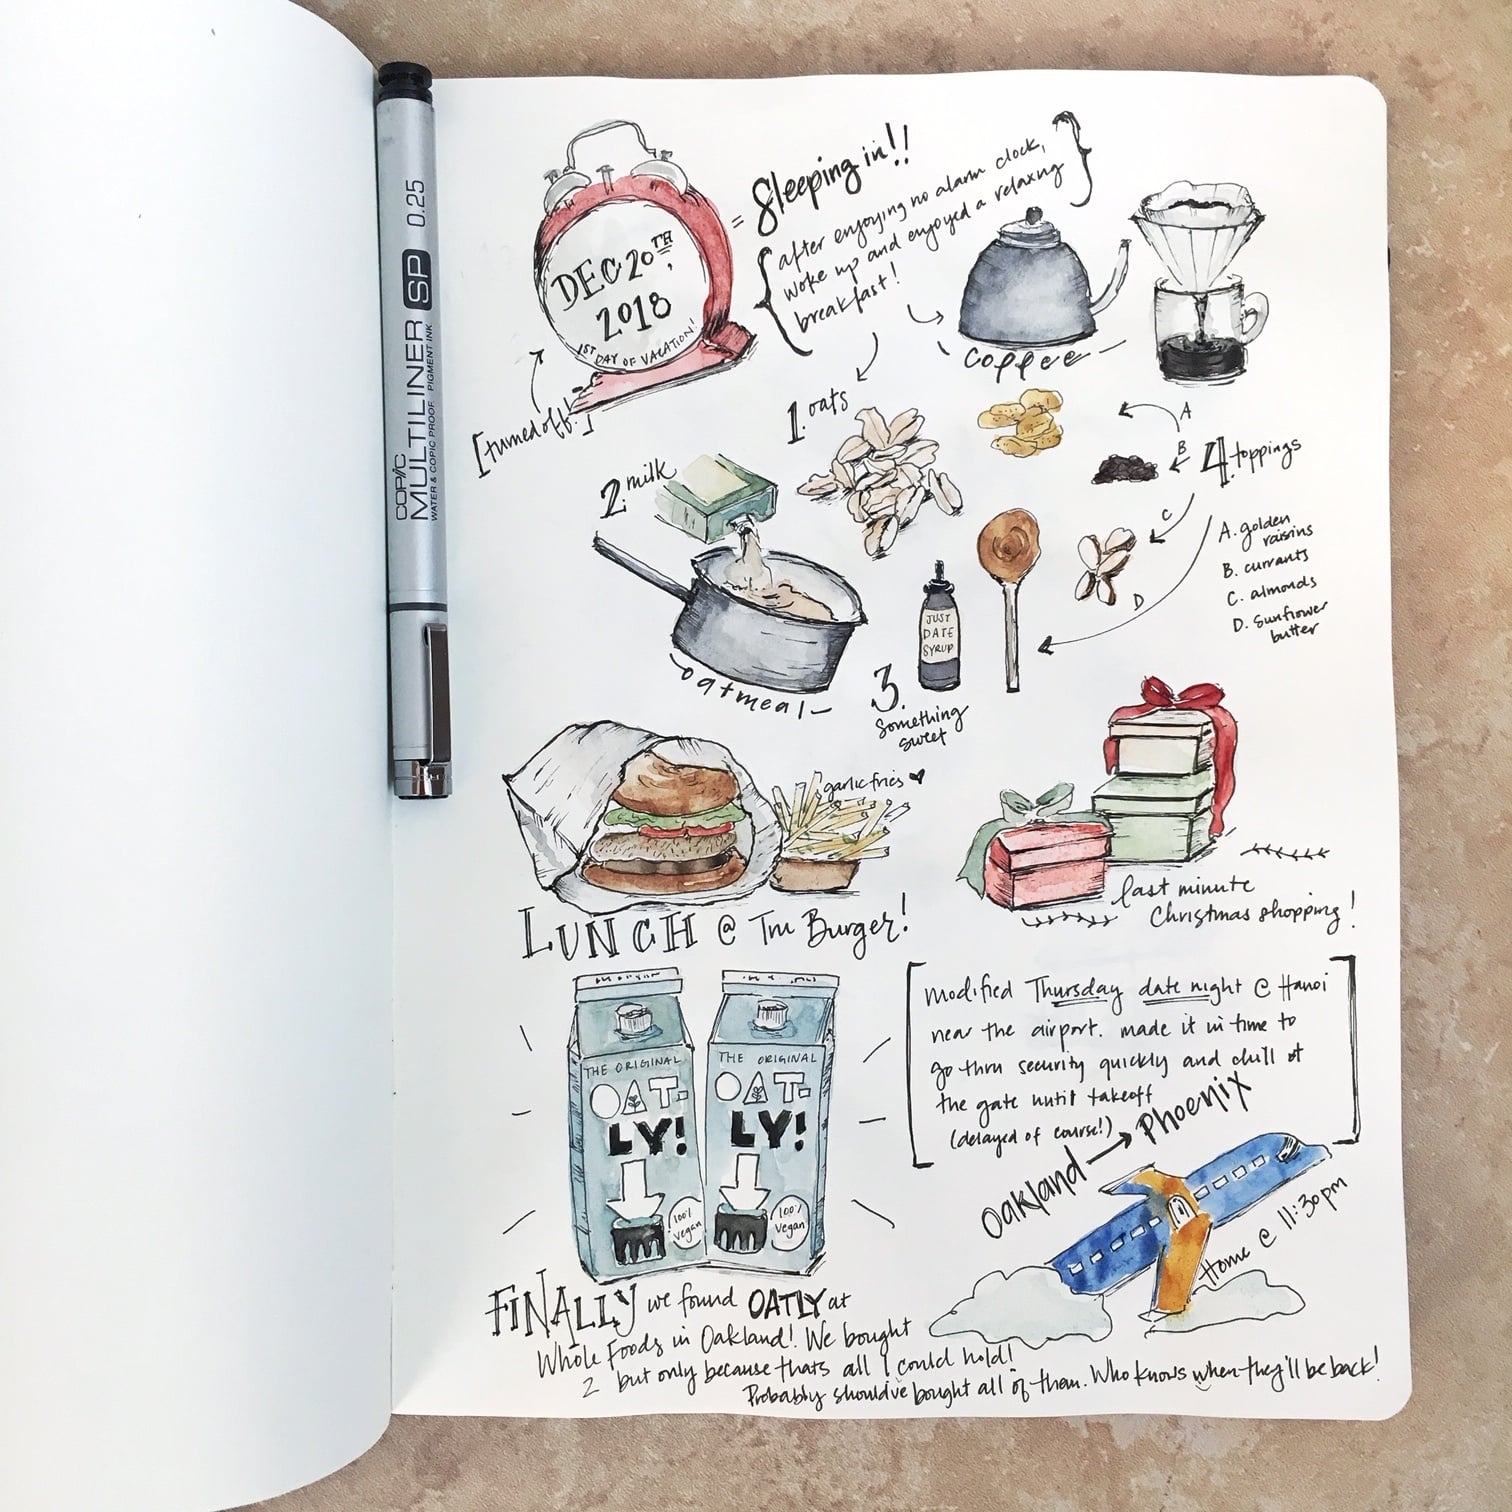 COPIC
MULTILINER SP 0.25
WATER & COPIC PROOF · PIGMENT INK
DEC 20TH,
2018
1ST DAY OF VACATION!
[turned off!]
= Sleeping in!!
{after enjoying no alarm clock,
woke up and enjoyed a relaxing
breakfast!}
- coffee -
1. oats
2. milk
- oatmeal -
JUST
DATE
SYRUP
3.
Something
sweet
A
B
C
D
4. toppings
A. golden
raisins
B. currants
C. almonds
D. sunflower
butter
garlic fries ♥
LUNCH @ Tru Burger!
last minute
Christmas shopping!
THE ORIGINAL
OAT-
LY!
100%
vegan
THE ORIGINAL
OAT-
LY!
100%
vegan
FINALLY we found OATLY at
Whole Foods in Oakland! We bought
2 but only because thats all I could hold!
Probably should've bought all of them. Who knows when they'll be back!
[modified Thursday date night @ Hanoi
near the airport. made it in time to
go thru security quickly and chill at
the gate until takeoff
(delayed of course!)]
Oakland → Phoenix
Home @ 11:30pm